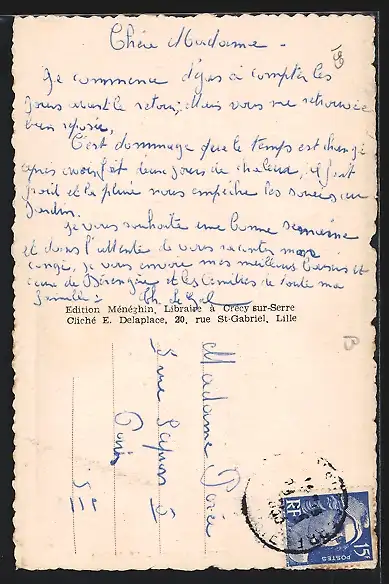 Chère Madame -
Je commence déjas à compter les
jours avant le retour, Mais vous me retrouverez
bien reposée,
C'est dommage que le temps est changé
après avoir fait deux jours de chaleur, il fait
froid et la pluie nous empêche les soirées au
Jardin.
Je vous souhaite une bonne semaine
et dans l'attente de vous raconter mes
congé, je vous envoie mes meilleurs baisers et
ceux de Bérengère et les amitiés de toute ma
famille -
Edition Ménéghin, Libraire à Crécy-sur-Serre
Cliché E. Delaplace, 20, rue St-Gabriel, Lille
Madame
5 rue
Paris
15F
RF
POSTES